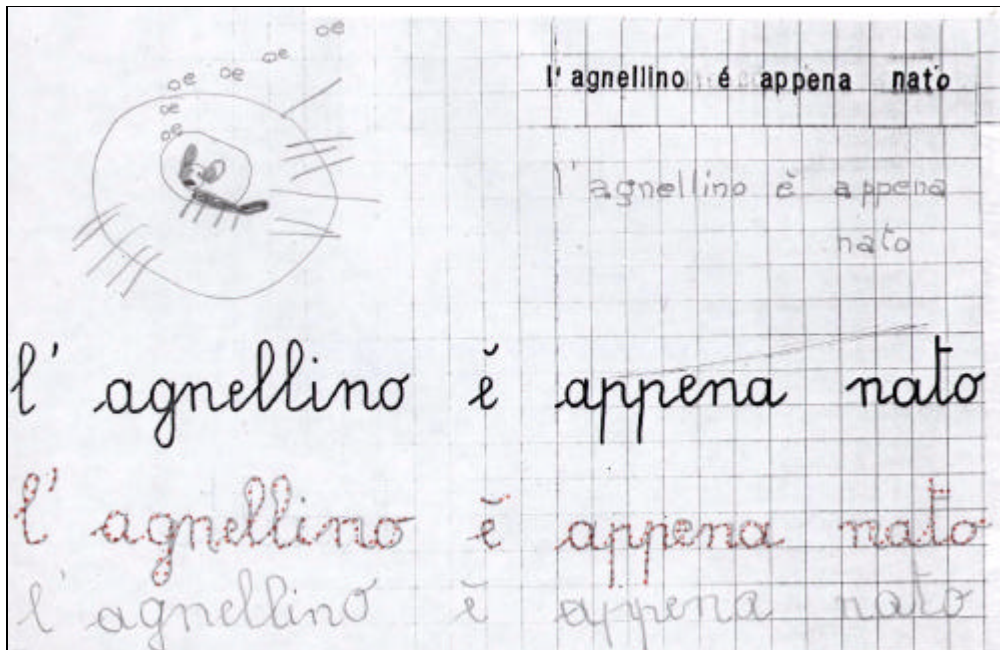 oe
oe
oe
oe
oe
l' agnellino é appena nato
l' agnellino è appena
nato
l' agnellino è appena nato
l' agnellino è appena nato
l' agnellino è appena nato